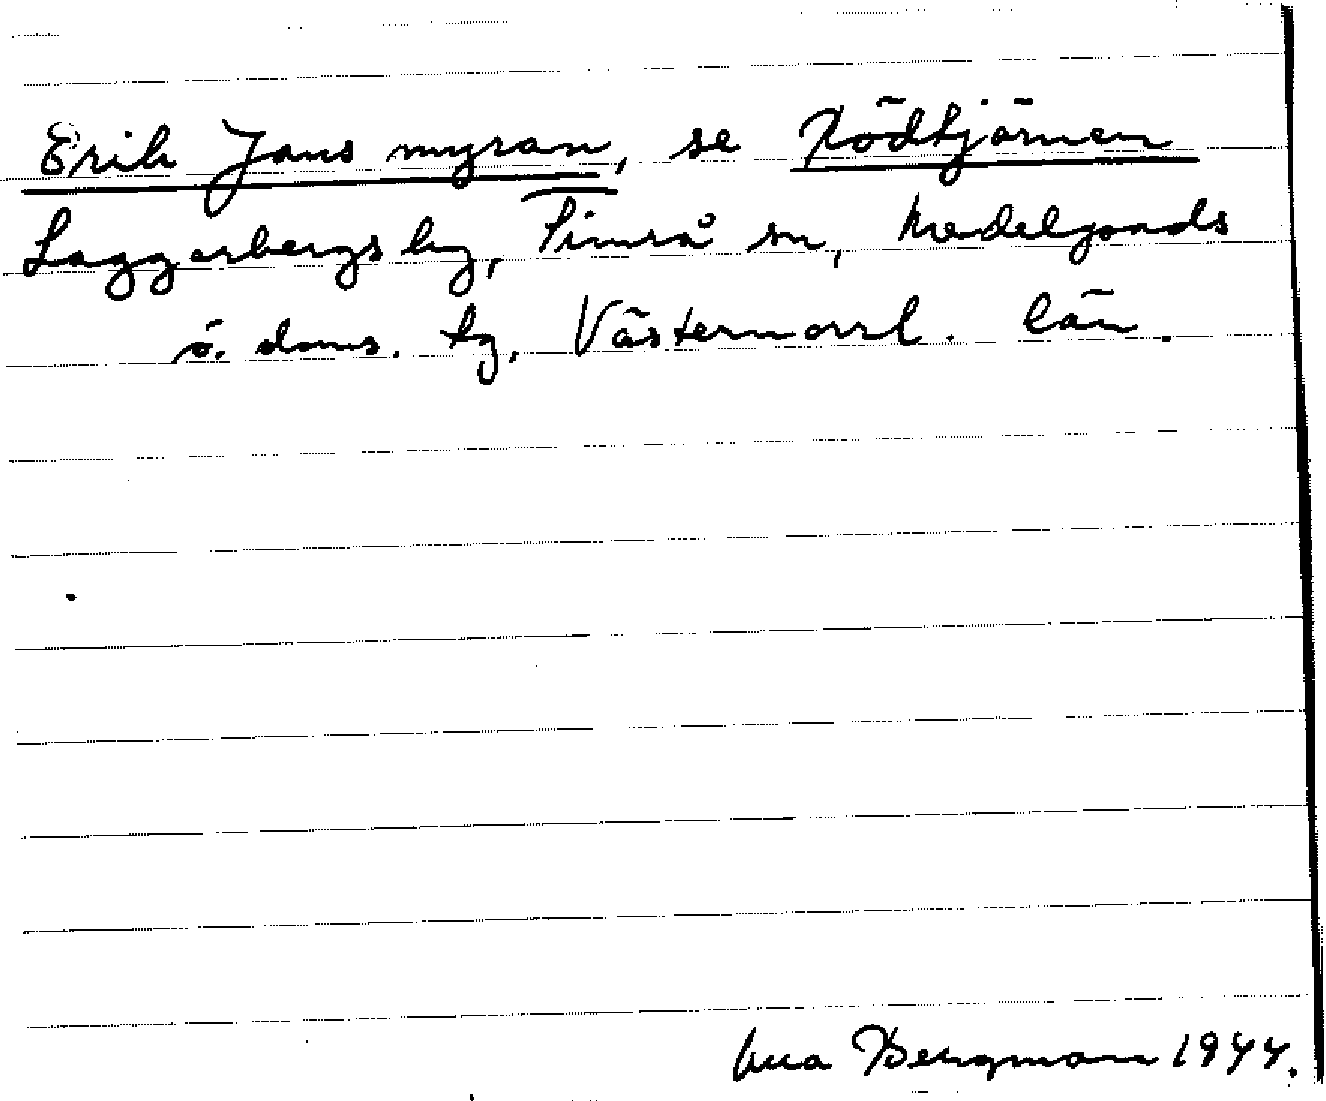 Erik Jans myran, se Rödtjärnen
Laggarbergs by, Timrå sn, Medelpads
ö. doms. tg, Västernorrl. län.
Bergman 1944.